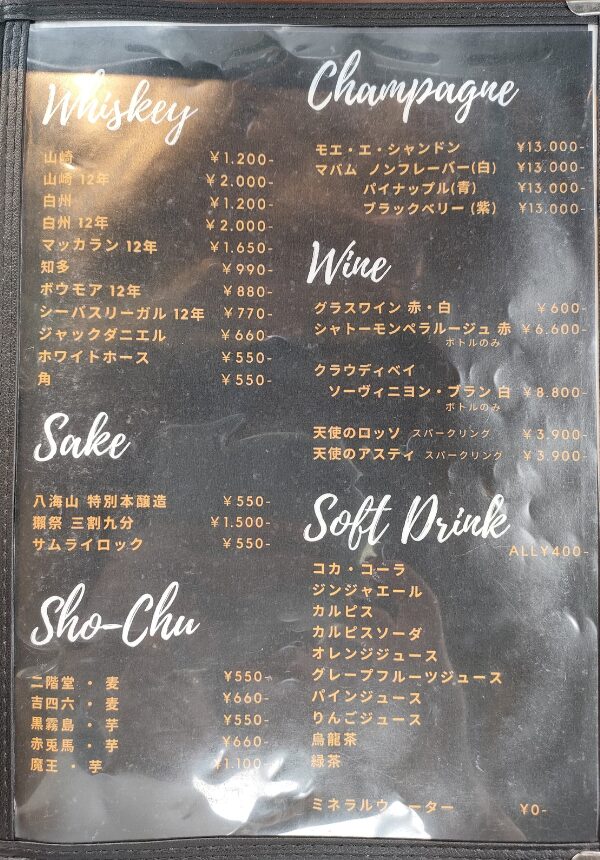 Whiskey
山崎 ¥1.200-
山崎 12年 ¥2.000-
白州 ¥1.200
白州 12年 ¥2.000-
マッカラン 12年 ¥1.650-
知多 ¥990-
ボウモア 12年 ¥880-
シーバスリーガル 12年 ¥770-
ジャックダニエル ¥660-
ホワイトホース ¥550-
角 ¥550-
Sake
八海山 特別本醸造 ¥550-
獺祭 三割九分 ¥1.500-
サムライロック ¥550-
Sho-Chu
二階堂 ・ 麦 ¥550-
吉四六 ・ 麦 ¥660-
黒霧島 ・ 芋 ¥550-
赤兎馬 ・ 芋 ¥660-
魔王 ・ 芋 ¥1.100-
Champagne
モエ・エ・シャンドン ¥13.000-
マバム ノンフレーバー(白) ¥13.000-
パイナップル(青) ¥13.000-
ブラックベリー (紫) ¥13.000-
Wine
グラスワイン 赤・白 ¥600-
シャトーモンペラルージュ 赤 ¥6.600-
ボトルのみ
クラウディベイ
ソーヴィニヨン・ブラン 白 ¥8.800-
ボトルのみ
天使のロッソ スパークリング ¥3.900-
天使のアスティ スパークリング ¥3.900-
Soft Drink
ALL¥400-
コカ・コーラ
ジンジャエール
カルピス
カルピスソーダ
オレンジジュース
グレープフルーツジュース
パインジュース
りんごジュース
烏龍茶
緑茶
ミネラルウォーター ¥0-